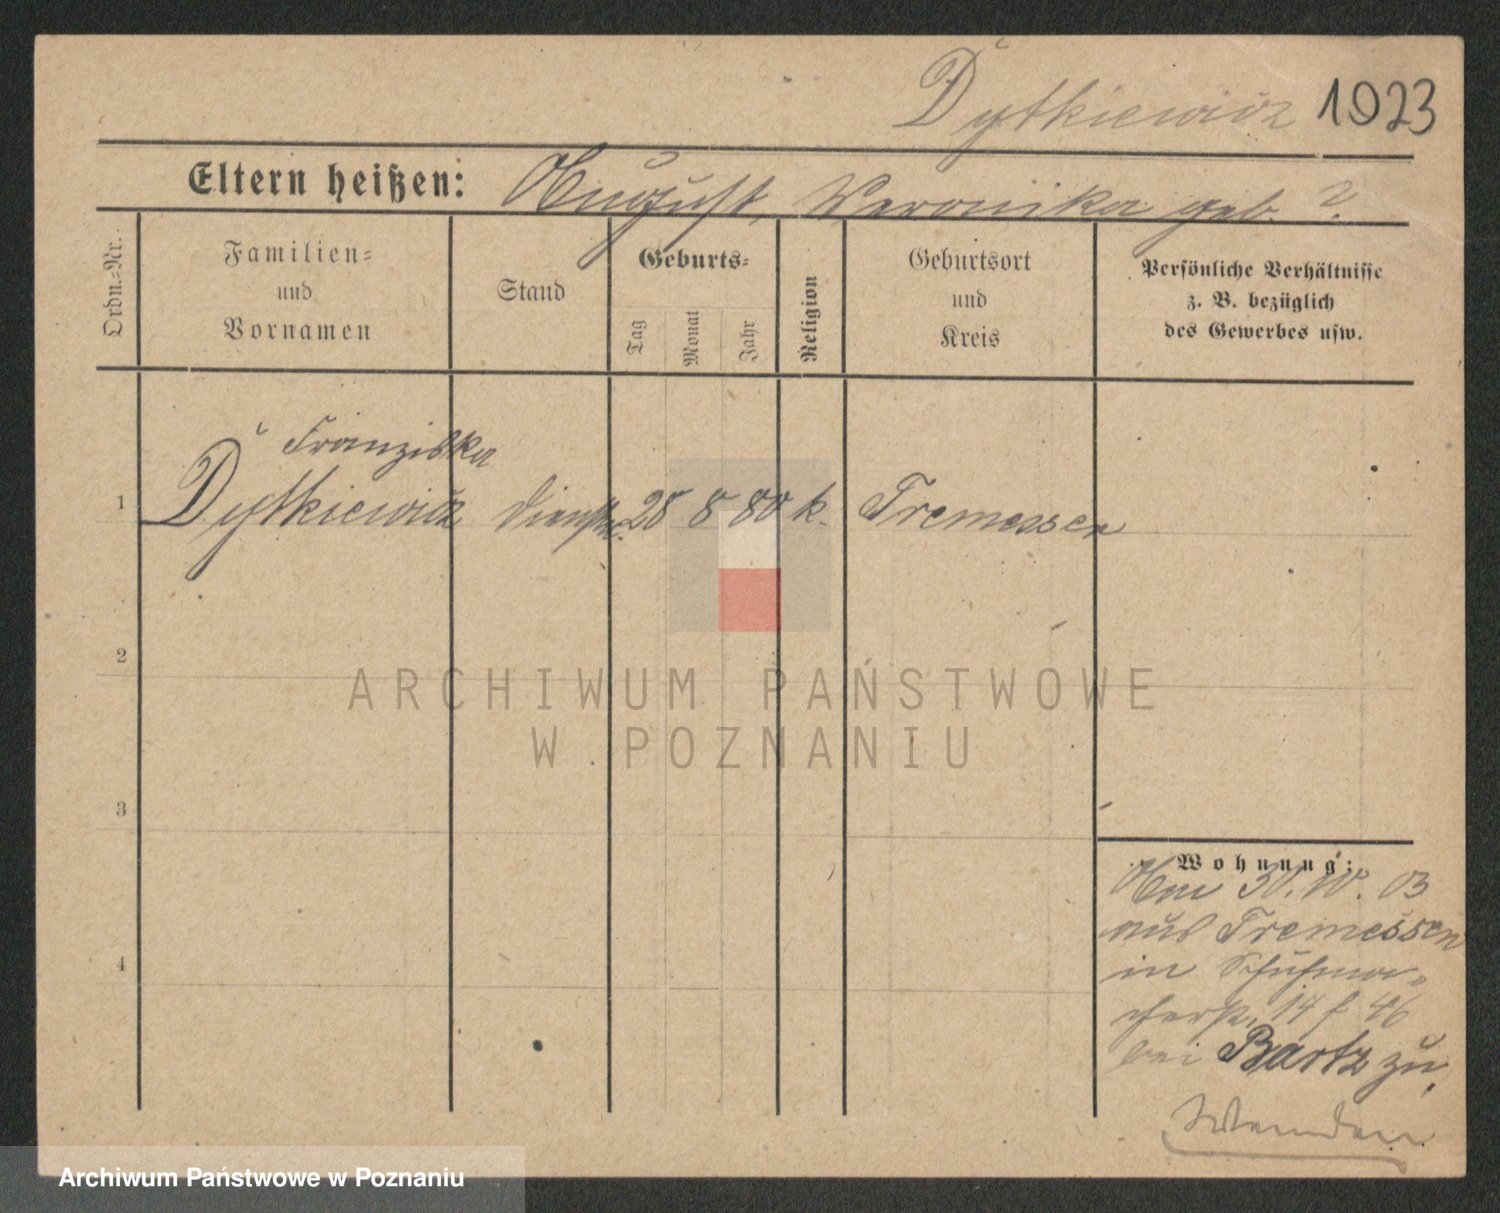 Dytkiewicz 1923
Eltern heißen: August, Veronika geb. ?.
Ordn.-Nr.
Familien-
und
Vornamen
Stand
Geburts-
Tag
Monat
Jahr
Religion
Geburtsort
und
Kreis
Persönliche Verhältnisse
z. B. bezüglich
des Gewerbes usw.
Franziska
1 Dytkiewicz Dienstm. 28 8 80 k. Tremessen
2
ARCHIWUM PAŃSTWOWE
W POZNANIU
3
Wohnung:
Am 30. 10. 03
aus Tremessen
in Schuhma-
cherstr. 14 f 46
bei Bartz zu.
4
Wenden
Archiwum Państwowe w Poznaniu